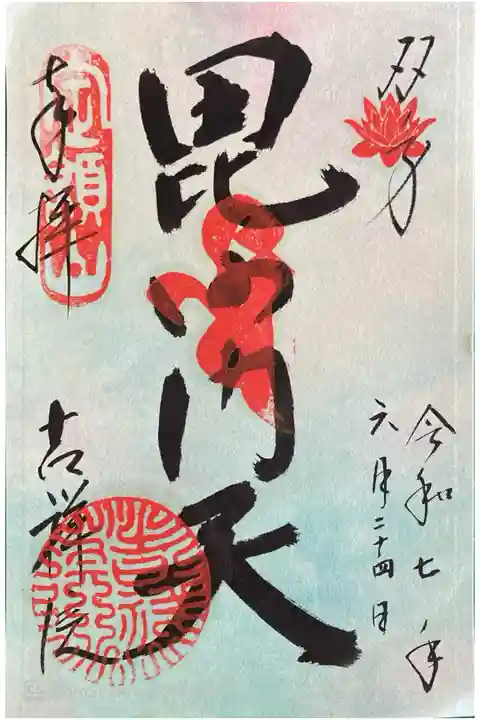 双子
令和七年
六月二十四日
毘沙門天
奉拝
吉祥院